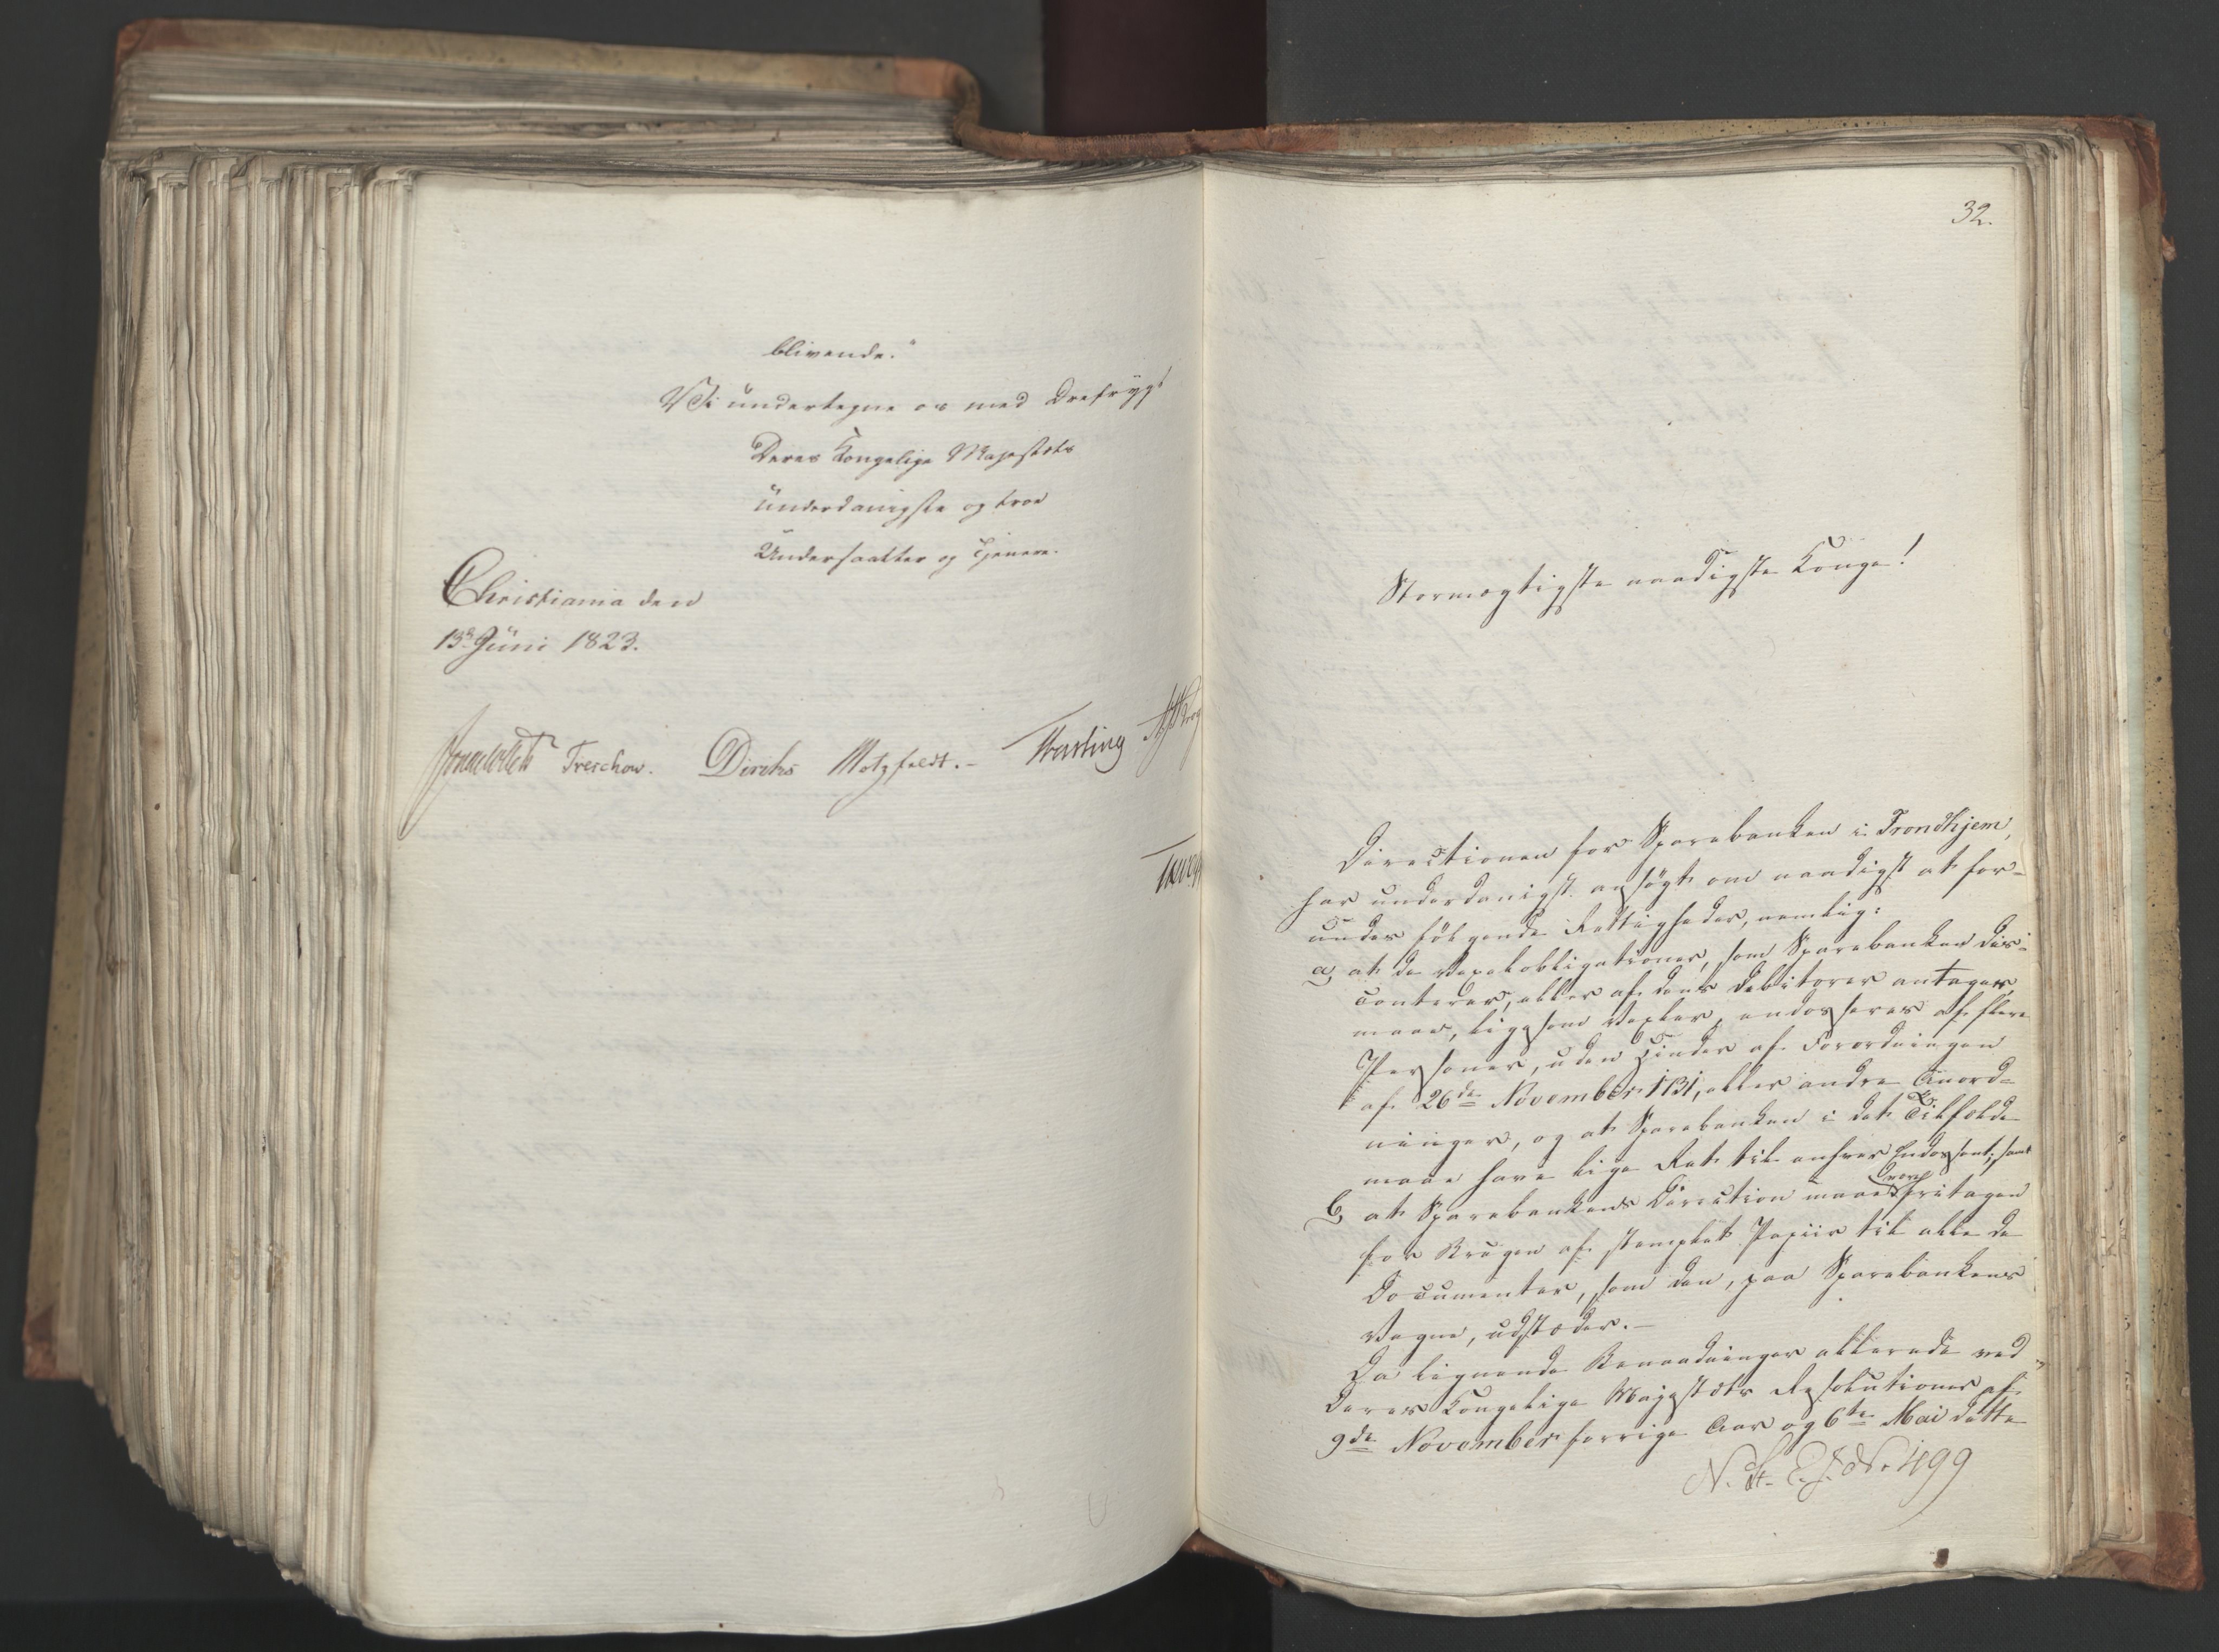 blivende."
Vi undertegne os med Ærefrygt
Deres Kongelige Majestæts
underdanigste og troe
Undersaatter og Tjenere.
Christiania den
13de Juni 1823.
Treschow. Diriks Motzfeldt. Fasting
32.
Stormægtigste naadigste Konge!
Directionen for Sparebanken i Trondhjem,
har underdanigst ansøgt om naadigst at for-
undes følgende Rettigheder, nemlig:
a, at de Vexelobligationer, som Sparebanken dis-
conterer, eller af dens Debitorer antager,
maae, ligesom Vexler, endosseres af flere
Personer, uden Hinder af Forordningen
af 26de November 1731, eller andre Anord-
ninger, og at Sparebanken i det Tilfælde
maae have lige Ret til enhver Endossent; samt
b, at Sparebankens Direction maae være fritagen
for Brugen af stemplet Papiir til alle de
Documenter, som den, paa Sparebankens
Vegne, udstæder.-
Da lignende Benaadninger allerede ved
Deres Kongelige Majestæts Resolutioner af
9de November forrige Aar og 6te Mai dette